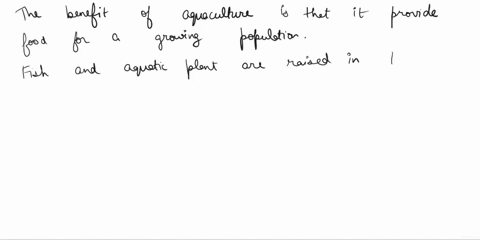 The benefit of aquaculture is that it provide
food for a growing population.
Fish and aquatic plant are raised in